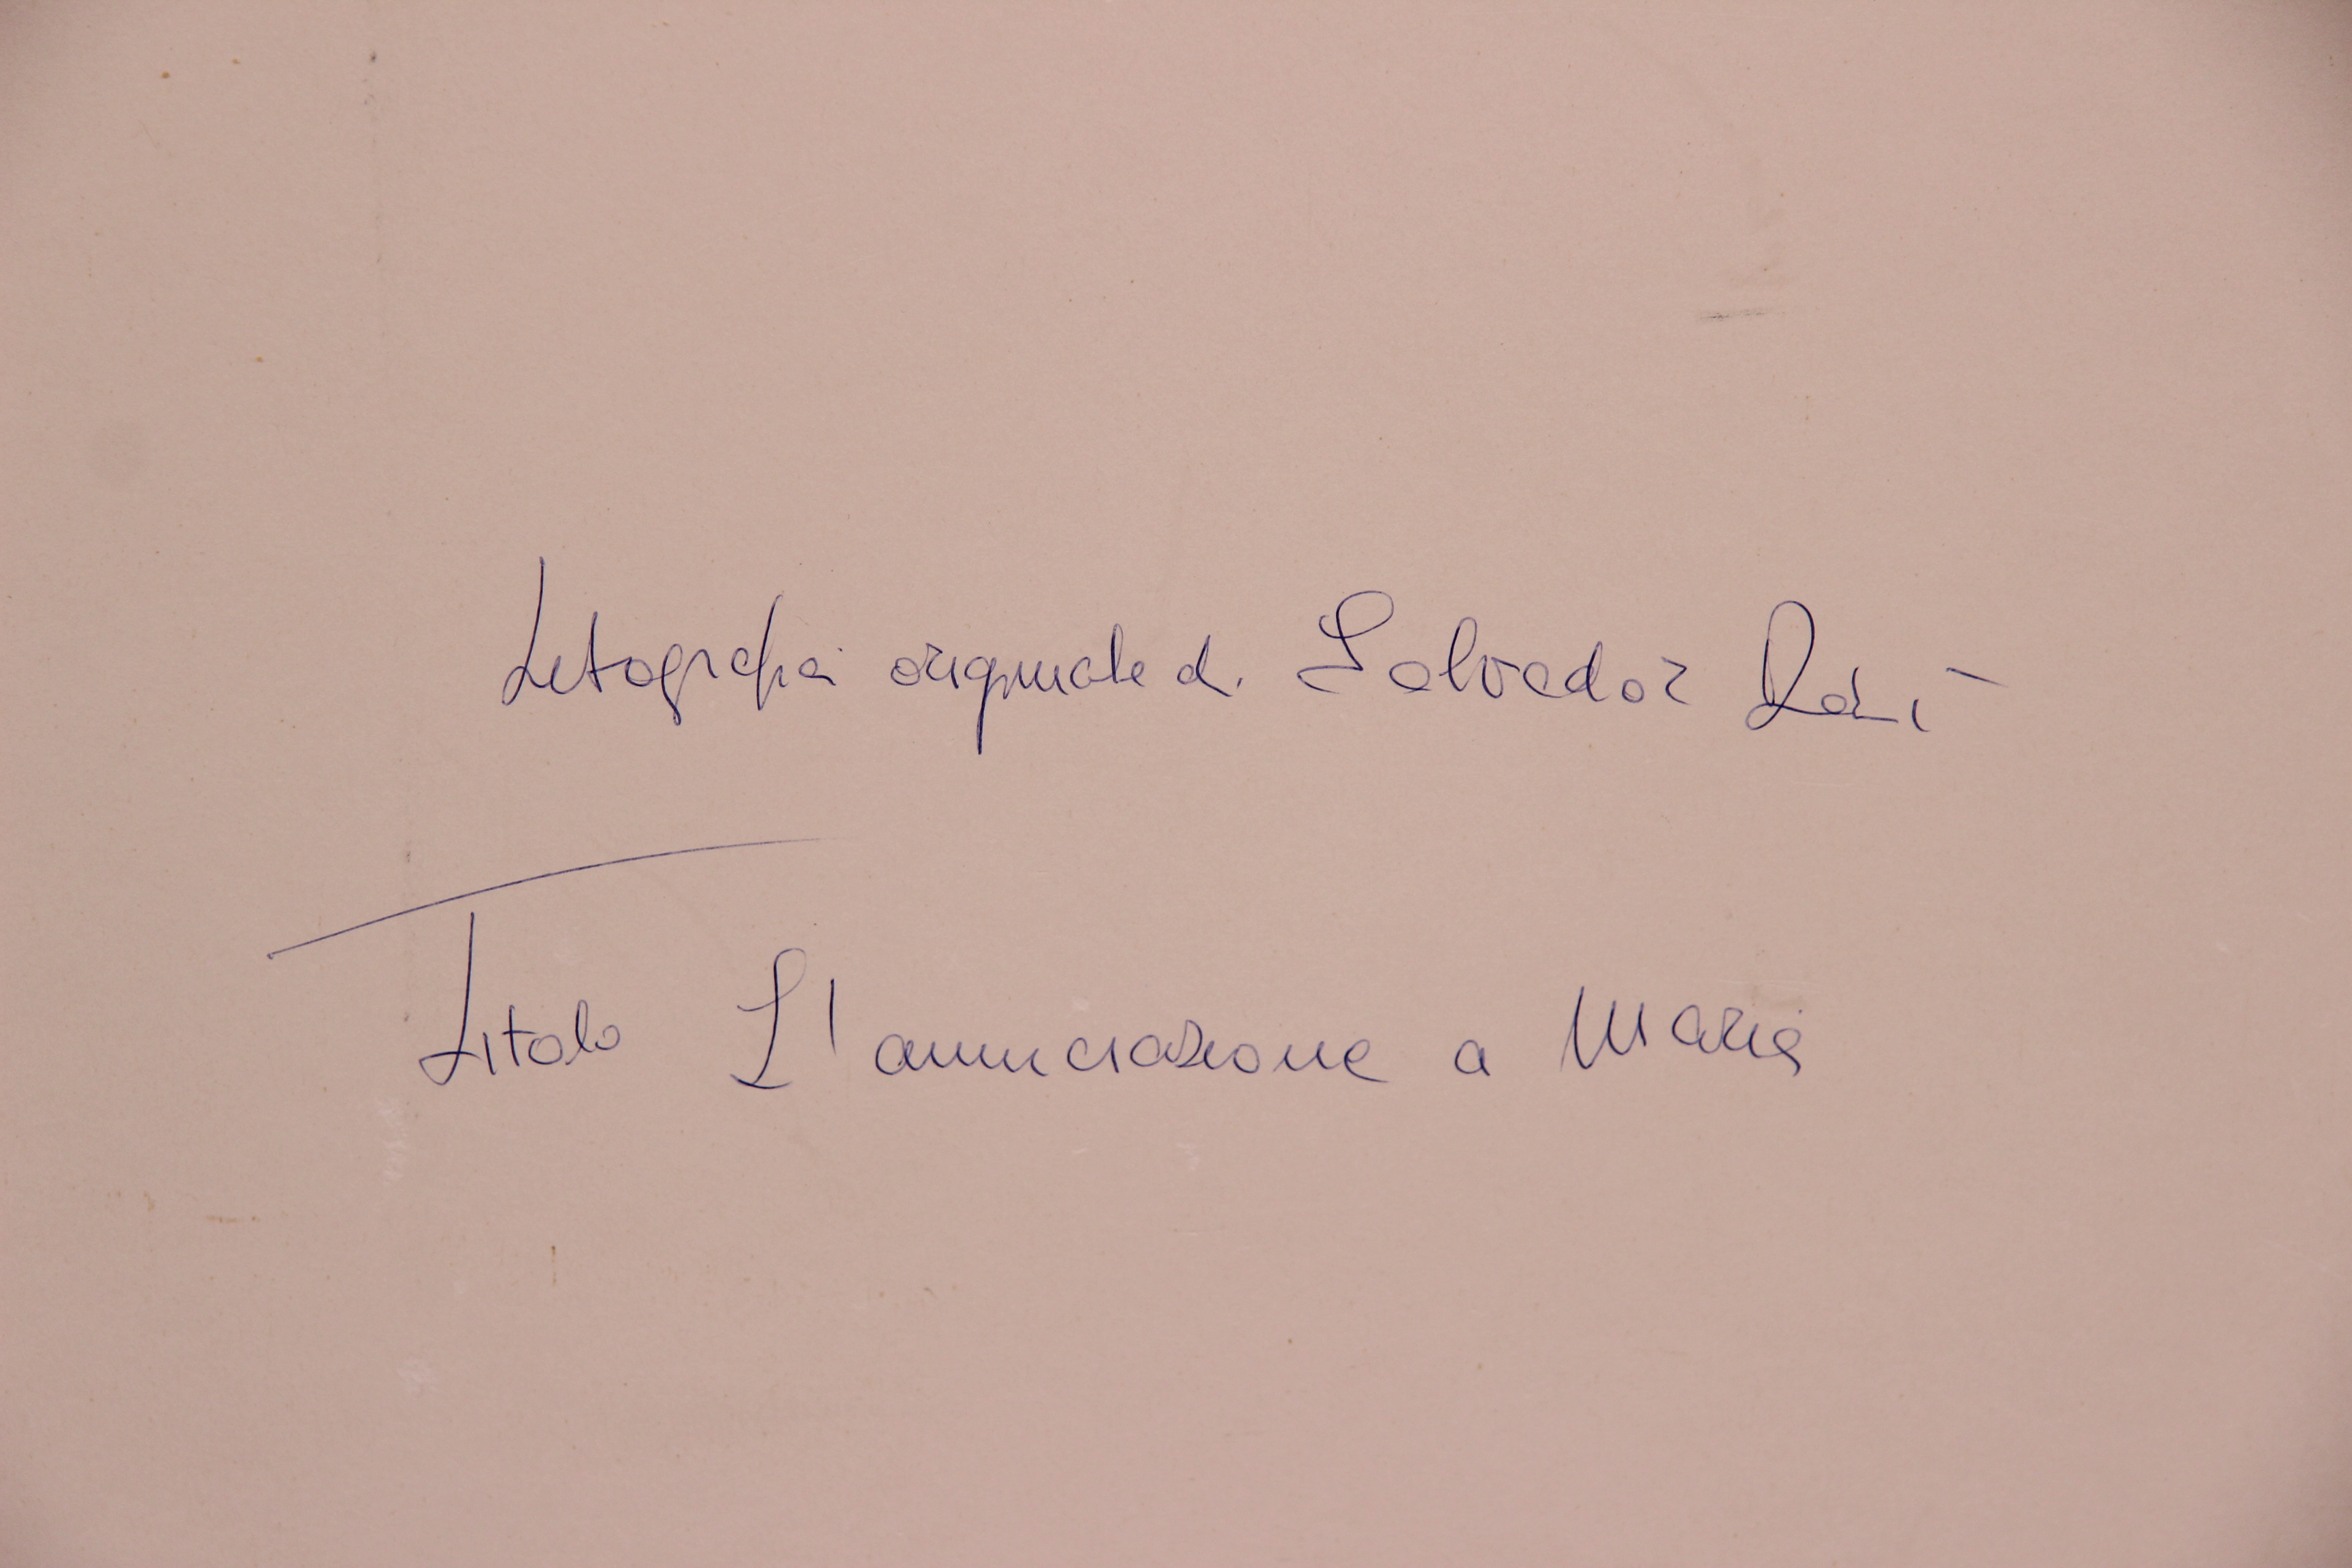 Litografia originale di Salvador Dalì
Titolo L'annunciazione a Maria